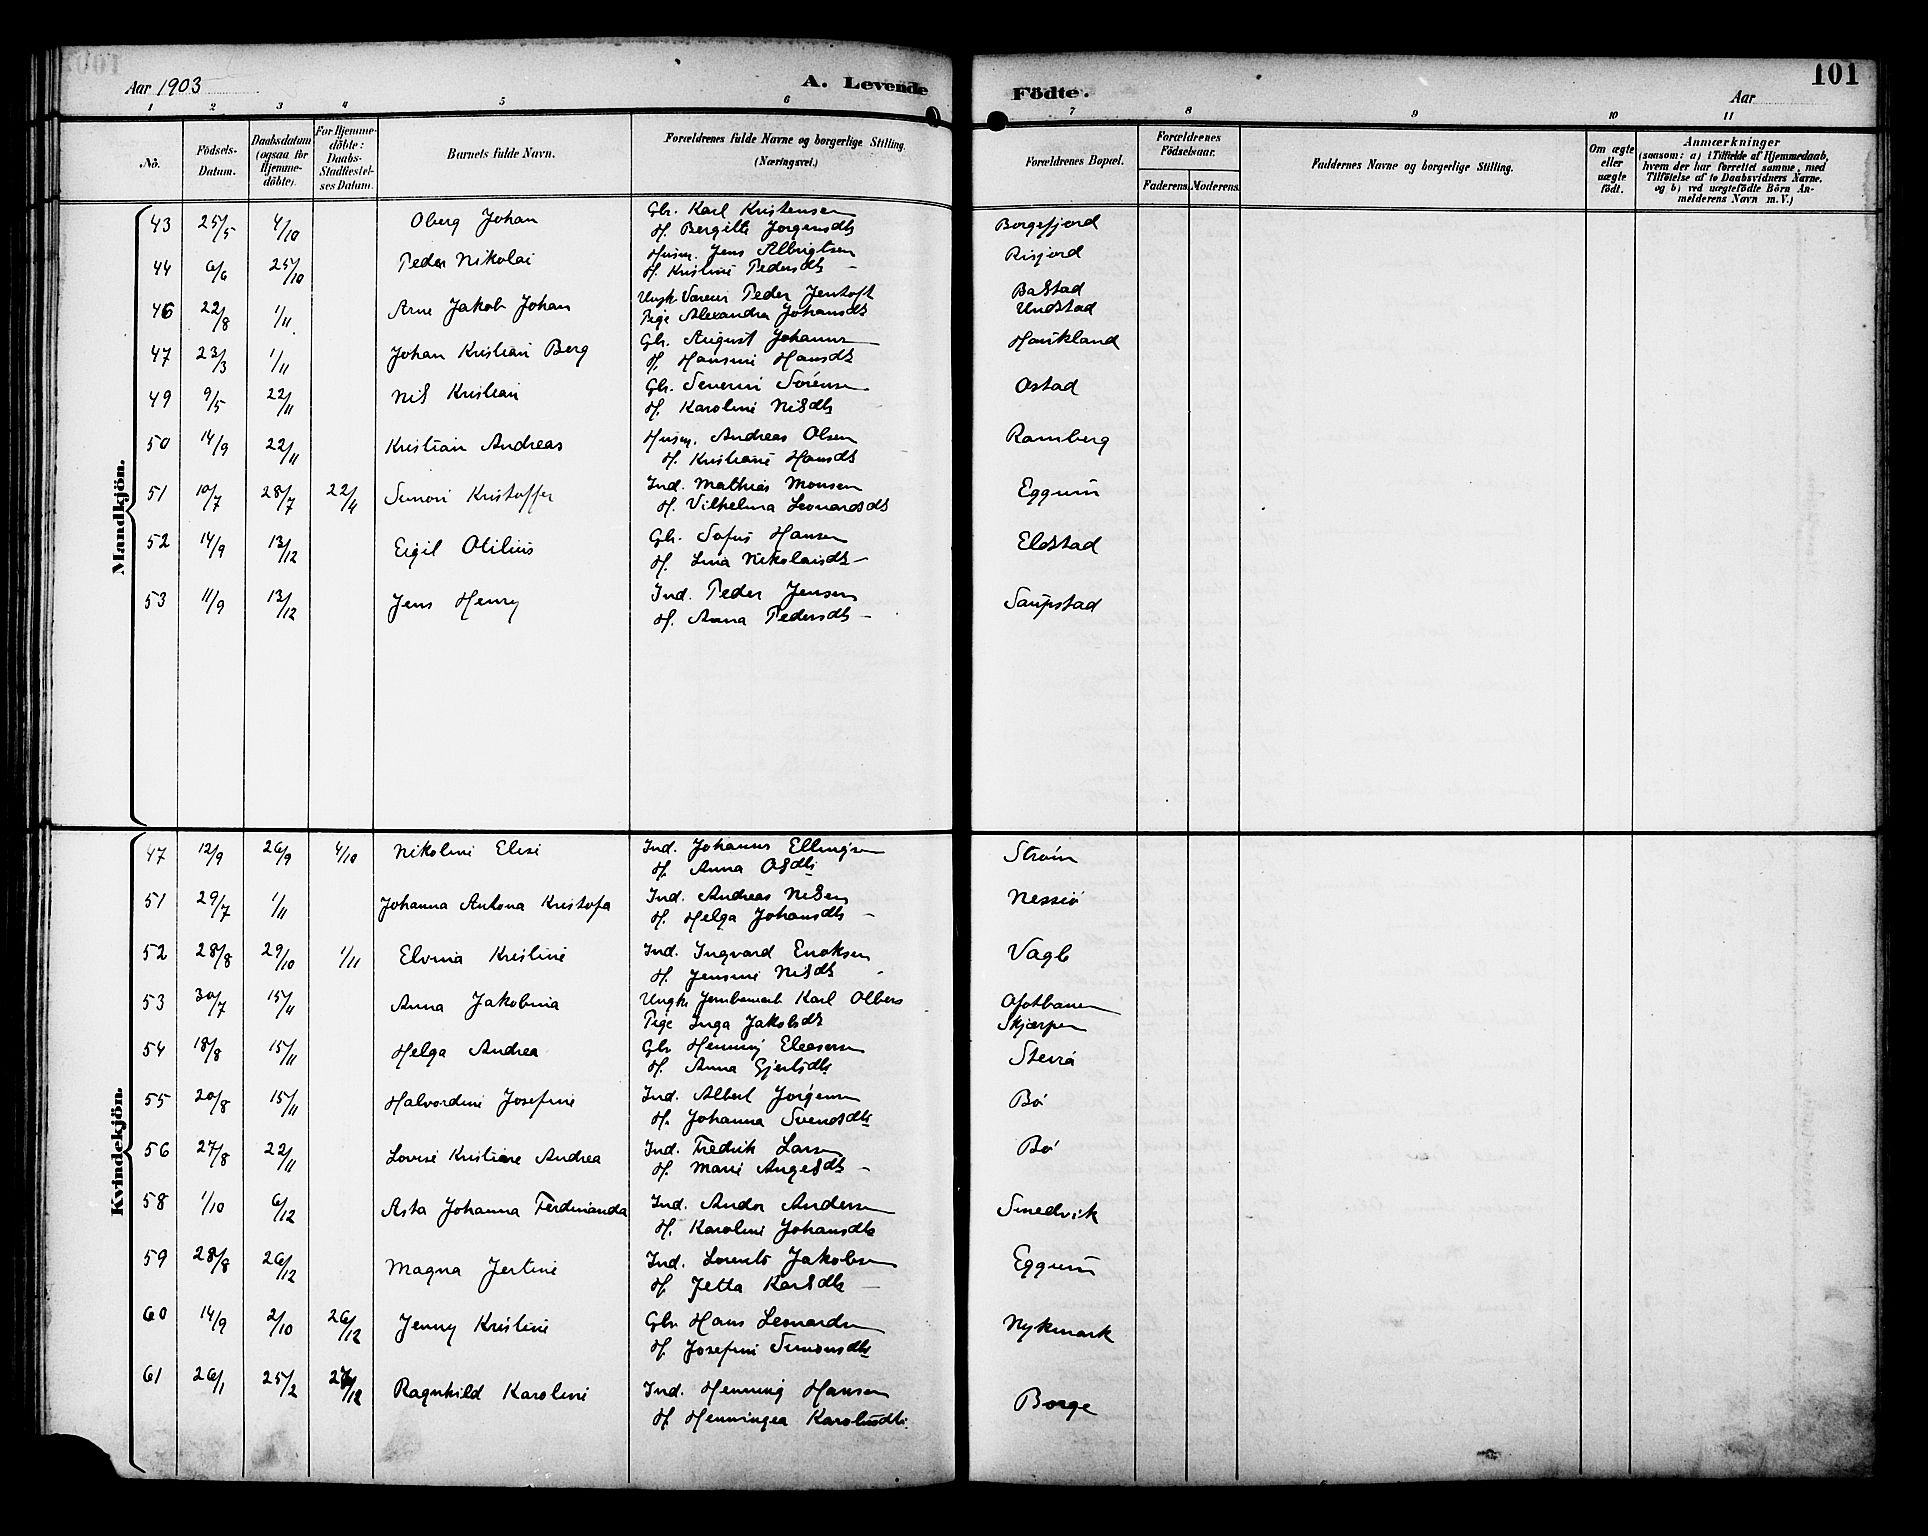 Aar 1903
A. Levende
Födte.
Aar
101
1 2 3 4 5 6 7 8 9 10 11
No.
Födsels-Datum.
Daabsdatum (ogsaa för Hjemme-döbte).
For Hjemme-döbte: Daabs-Stadfæstel-ses Datum.
Barnets fulde Navn.
Forældrenes fulde Navne og borgerlige Stilling. (Næringsvei.)
Forældrenes Bopæl.
Forældrenes Födselsaar.
Faderens. Moderens.
Faddernes Navne og borgerlige Stilling.
Om ægte eller uægte födt.
Anmærkninger
(saasom: a) i Tilfælde af Hjemmedaab,
hvem der har forrettet samme, med
Tilföielse af to Daabsvidners Navne,
og b) ved uægtefödte Börn An-
melderens Navn m.V.)
Mandkjön.
43 25/5 4/10 Oberg Johan Gbr. Karl Kristensen Borgefjord
H. Bergitte Jørgensdtr
44 6/6 25/10 Peder Nikolai Husm. Jens Albrigtsen Risjord
H. Kristine Pedersdtr
46 22/8 1/11 Arne Jakob Johan Ungk. Peder Jentoft Bastad
Pige Alexandra Johansdtr Undstad
47 23/3 1/11 Johan Kristian Berg Gbr. August Johannes Haukland
H. Hansine Hansdtr
49 9/5 22/11 Nils Kristian Gbr. Severin Sørensen Ostad
H. Karoline Nilsdtr
50 14/9 22/11 Kristian Andreas Husm. Andreas Olsen Ramberg
H. Kristiane Hansdtr
51 10/7 28/7 22/4 Simon Kristoffer Ind. Mathias Monsen Eggum
H. Vilhelma Leonardsdtr
52 14/9 13/12 Eigil Otilius Gbr. Sofus Hansen Eldstad
H. Lina Nikolaisdtr
53 11/9 13/12 Jens Henry Ind. Peder Jensen Saupstad
H. Anna Pedersdtr
Kvindekjön.
47 12/9 26/9 4/10 Nikoline Elise Ind. Johannes Ellingsen Strøm
H. Anna Olsdtr
51 29/7 1/11 Johanna Antona Kristofa Ind. Andreas Nilsen Nessiø
H. Helga Johansdtr
52 28/8 29/10 1/11 Elvina Kristine Ind. Ingvard Enoksen Vagle
H. Jensine Nilsdtr
53 30/7 15/11 Anna Jakobina Ungk. Jernbanearb Karl Olbers Ofotbanen
Pige Inga Jakobsdtr Skjærpen
54 18/8 15/11 Helga Andrea Gbr Henning Eleasersen Steirá
H. Anna Gjertsdtr
55 20/8 15/11 Halvordine Josefine Ind. Albert Jørgensen Bø
H. Johanna Svendsdtr
56 27/8 22/11 Lovise Kristiane Andrea Ind. Fredrik Larsen Bø
H. Marie Angelsdtr
58 1/10 6/12 Asta Johanna Ferdinanda Ind. Andor Andersen Smedvik
H. Karoline Johansdtr
59 28/8 26/12 Magna Jertine Ind. Lorents Jakobsen Eggum
H. Jetta Karlsdtr
60 14/9 2/10 26/12 Jenny Kristine Gbr Hans Leonardsen Nykmark
H. Josefine Simonsdtr
61 26/1 25/2 27/12 Ragnhild Karoline Ind. Henning Hansen Borge
H. Henningea Karolusdtr